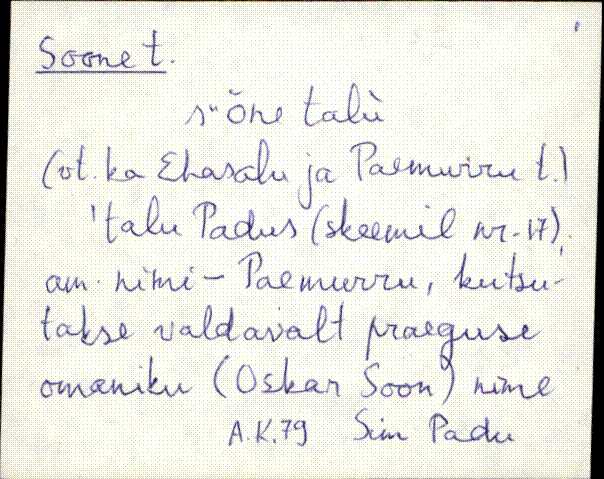 Soone t.
s"õne talù
(vt. ka Ehasalu ja Paemurru t.)
'talu Padus (skeemil nr. 17),
am. nimi – Paemurru, kutsu-
takse valdavalt praeguse
omaniku (Oskar Soon) nime
A.K. 79 Sim Padu